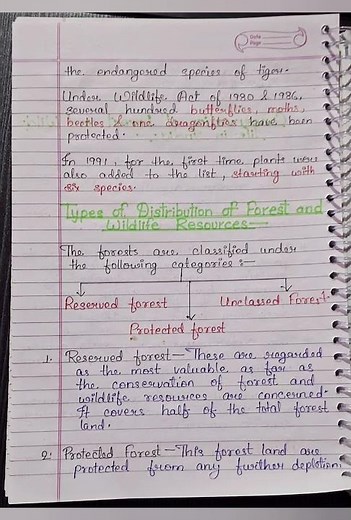 Date
Page
the endangered species of tiger.
Under Wildlife Act of 1980 & 1986,
several hundred butterflies, moths,
beetles & one dragonflies have been
protected.
In 1991, for the first time plants were
also added to the list, starting with
six species.
Types of Distribution of Forest and
Wildlife Resources—
The forests are classified under
the following categories:—
Reserved forest
Unclassed Forest.
Protected forest
1. Reserved forest— These are regarded
as the most valuable as far as
the conservation of forest and
wildlife resources are concerned.
It covers half of the total forest
land.
2. Protected Forest—This forest land are
protected from any further depletion.